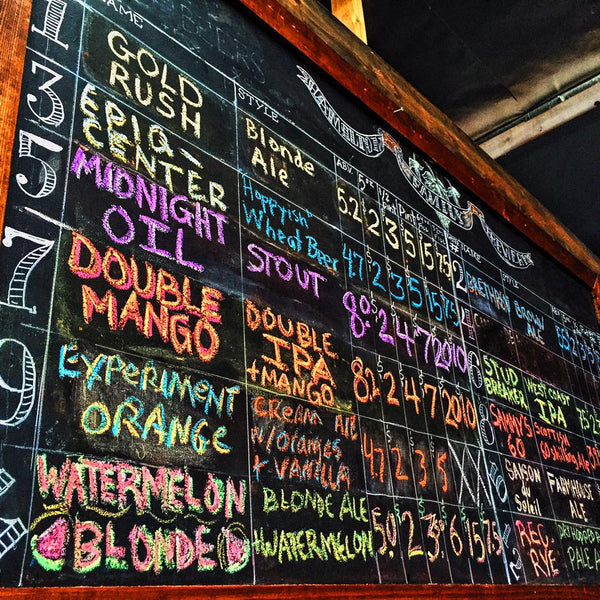 1
GOLD
RUSH
STYLE
Blonde
Ale
5.2 2 3 5 15 7.5
3
EPIQ-
CENTER
"Hoppyish"
Wheat Beer
4.7 2 3 5 15 7.5
5
MIDNIGHT
OIL
STOUT
8.0 2 4 7 20 10
7
DOUBLE
MANGO
DOUBLE
IPA
+MANGO
8.2 2 4 7 20 10
9
EXPERIMENT
ORANGE
CREAM ALE
w/ORANGES
+ VANILLA
4.7 2 3 5
11
WATERMELON
BLONDE
BLONDE ALE
+WATERMELON
5.0 2 3 6 15 7.5
# NAME
STYLE
2
BROWN
ALE
4
6
STUD
BREAKER
WEST COAST
IPA
7.5
8
SAMMY'S
60
SCOTTISH
60 Shilling Ale
SAISON
du
Soleil
FARMHOUSE
ALE
RED
RYE
PALE